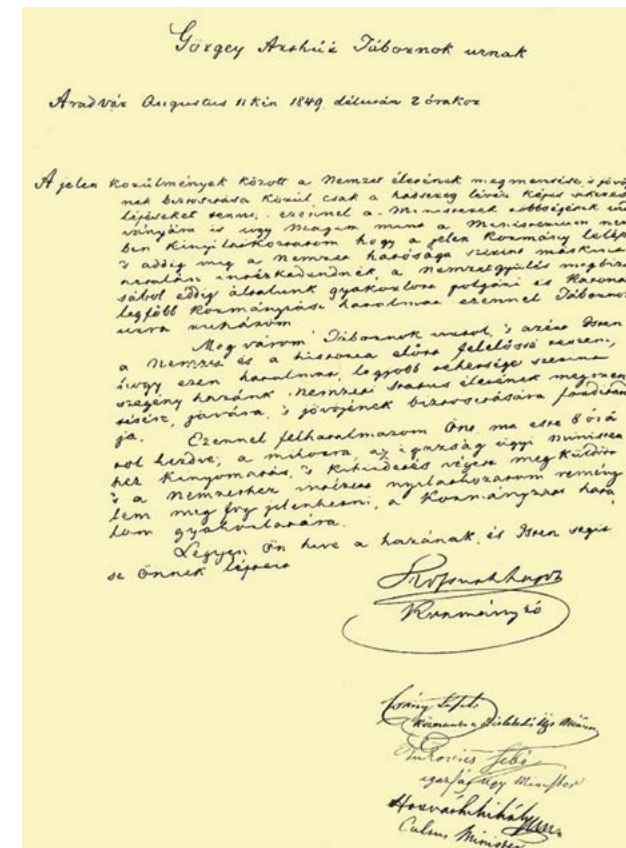 Görgey Arthúr Tábornok urnak
Aradvár Augustus 11kén 1849. délután 2 órakor
A jelen körülmények között a Nemzet életének megmentése, 's jövő
nek biztosítása körül csak a hadsereg lévén képes sikeres
lépéseket tenni; ezennel a Ministerek többségének
ványára is ugy magam mint a Ministerium ne
ben kinyilatkoztatom hogy a jelen Kormány lelép
's addig mig a Nemzet hatósága szerint máskint
netalán intézkedendnék, a Nemzetgyülés megbiza
sából eddig általunk gyakorlott polgári és Katonai
legfőbb Kormányzási hatalmat ezennel Tábornok
urra ruházom
Meg várom Tábornok urtol, 's azért Isten
a Nemzet és a historia előtt felelőssé teszem,
hogy ezen hatalmat, legjobb tehetsége szerint
szegény hazánk Nemzeti Status életének megmen
tésére, javára, 's jövőjének biztosítására forditand
ja. Ezennel felhatalmazom Önt, ma este 8 órá
tol kezdve, a mikorra, az igazság ügyi minister
hez kinyomatás, 's kihirdetés végett megküldött
's a Nemzethez intézett nyilatkozatom remény
lem meg fog jelenhetni, a Kormányzati hata
lom gyakorlatára.
Legyen Ön hive a hazának, és Isten segit
se Önnek lépteit
Kossuth Lajos
Kormányzó
Csány László
Közmunka s Közlekedési Ügy Minister
Vukovics Sebő
igazság ügy Minister
Horváth Mihály
Cultus Minister